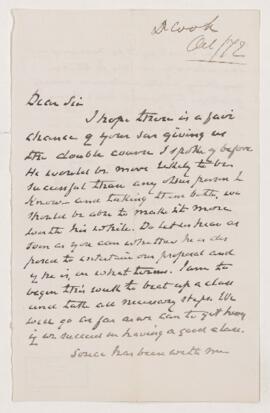 Dr Cook
Oct/72
Dear Sir
I hope there is a fair
chance of your son giving us
the double course I spoke of before
He would be more likely to be
successful than any other person I
know - and taking them both, we
should be able to make it more
worth his while. Do let us hear as
soon as you can whether he is dis
posed to entertain our proposal and
if he is, on what terms. I am to
begin this week to beat up a class
and take all necessary steps. We
will go as far as we can to get
if we succeed in having a good class.
has been with me